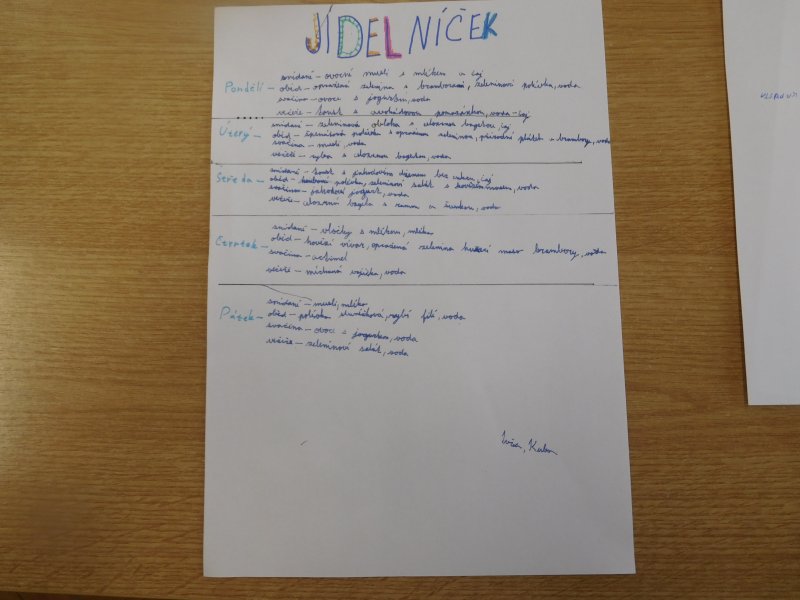 JÍDELNÍČEK
Pondělí - snídaně - ovocné musli s mlékem a čaj
oběd - opražená zelenina s bramborami, zeleninová polívka, voda
svačina - ovoce s jogurtem, voda
večeře - toust s avokádovou pomazánkou, voda - čaj
Úterý - snídaně - zeleninová obloha s celozrnou bagetou, čaj
oběd - špenátová polívka s opraženou zeleninou, přírodní plátek a brambory, voda
svačina - musli, voda
večeře - ryba s celozrnou bagetou, voda
Středa - snídaně - toust s jahodovým džemem bez cukru, čaj
oběd - houbová polívka, zeleninový salát s kuřecím masem, voda
svačina - jahodový jogurt, voda
večeře - celozrná bageta s rama a šunkou, voda
Čtvrtek - snídaně - vločky s mlékem, mlíko
oběd - hovězí vývar, opražená zelenina kuřecí maso brambory, voda
svačina - actimel
večeře - míchaná vajíčka, voda
Pátek - snídaně - musli, mlíko
oběd - polívka, rybí filé, voda
svačina - ovoce s jogurtem, voda
večeře - zeleninový salát, voda